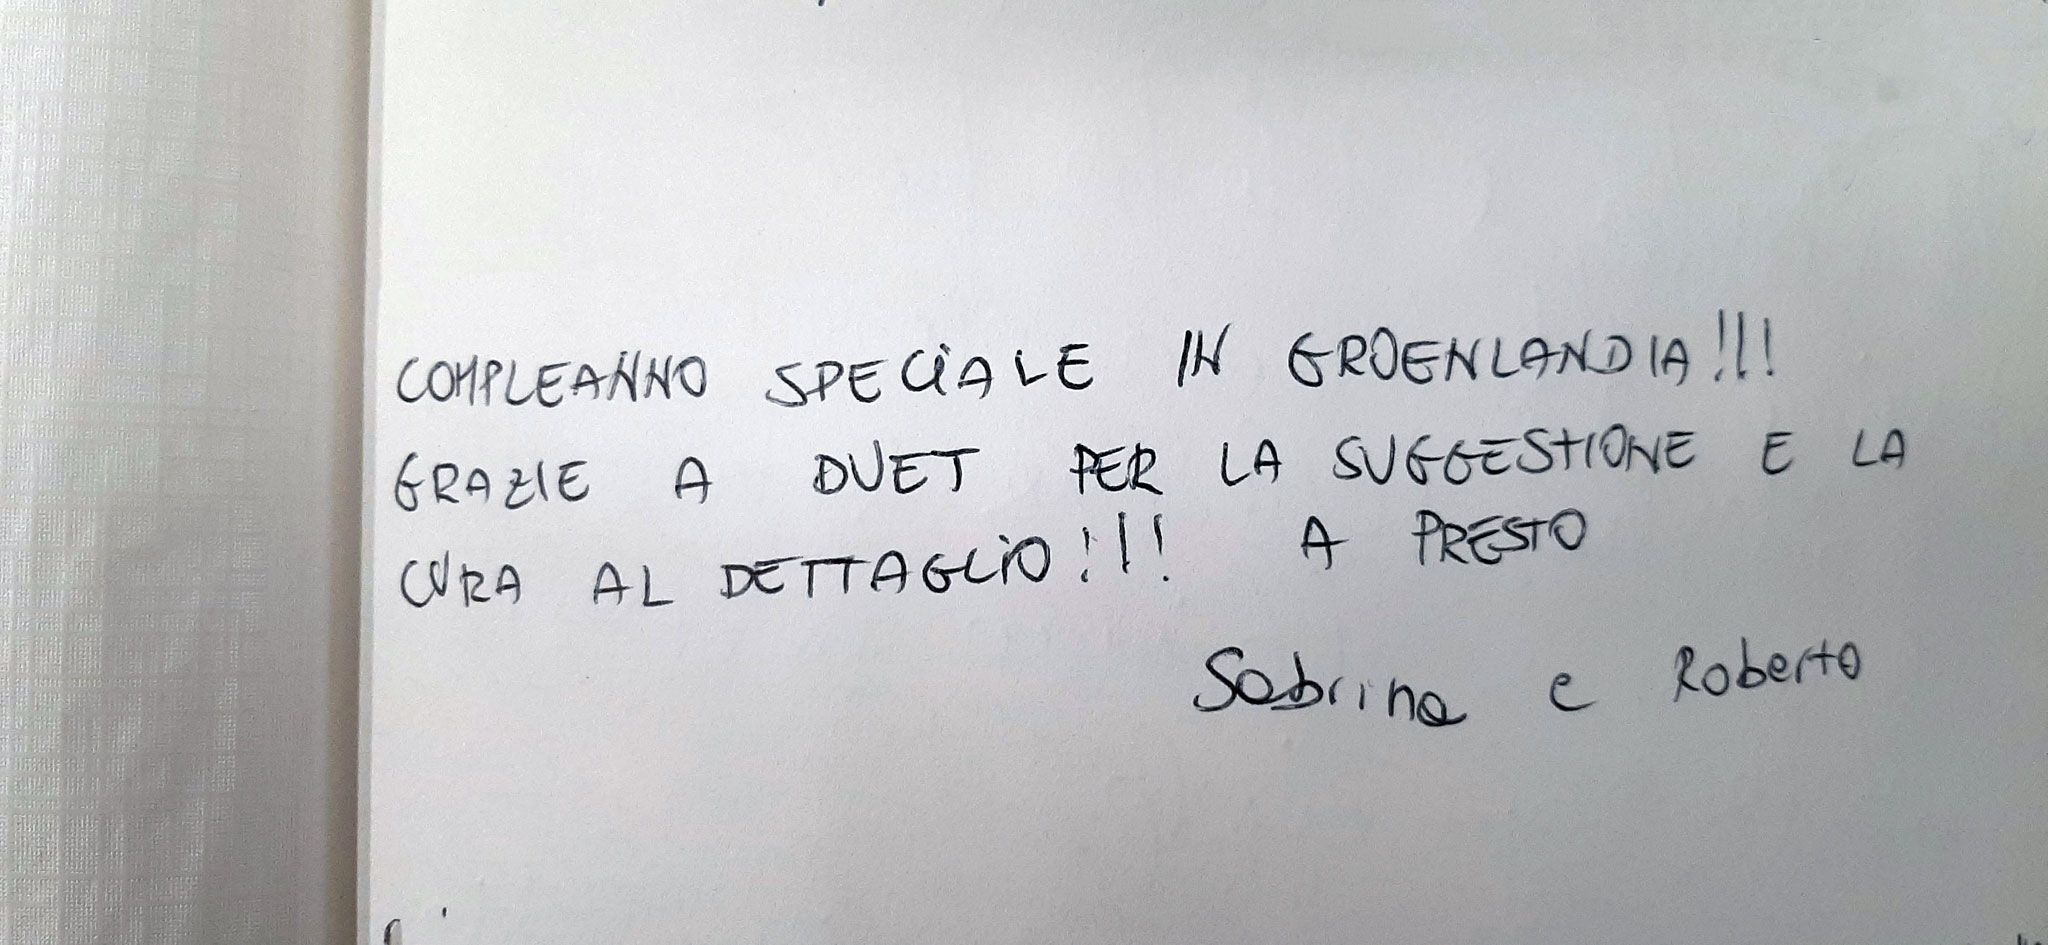 COMPLEANNO SPECiALE IN GROENLANDIA!!!
GRAZIE A DUET PER LA SUGGESTIONE E LA
CURA AL DETTAGLiO!!! A PRESTO
Sabrina e Roberto